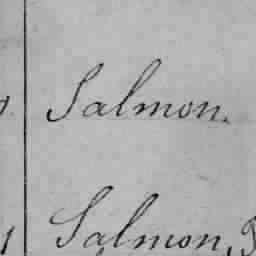 Salmon.
Salmon,